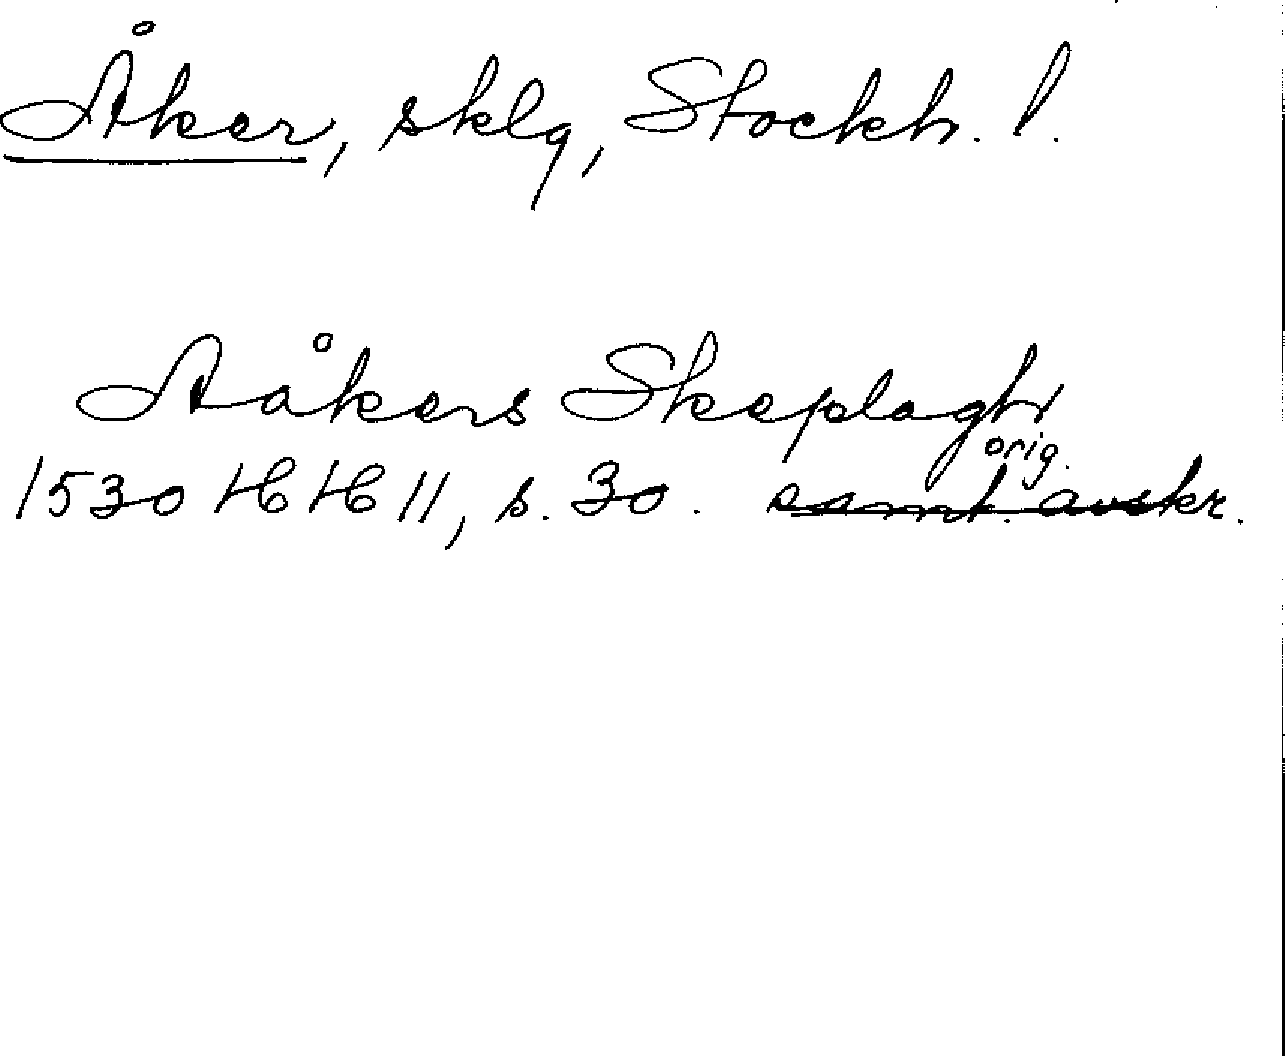 Åker, sklg, Stockh. l.
Aåkers Skeplaght
orig.
1530 HH 11, s. 30. samt. avskr.